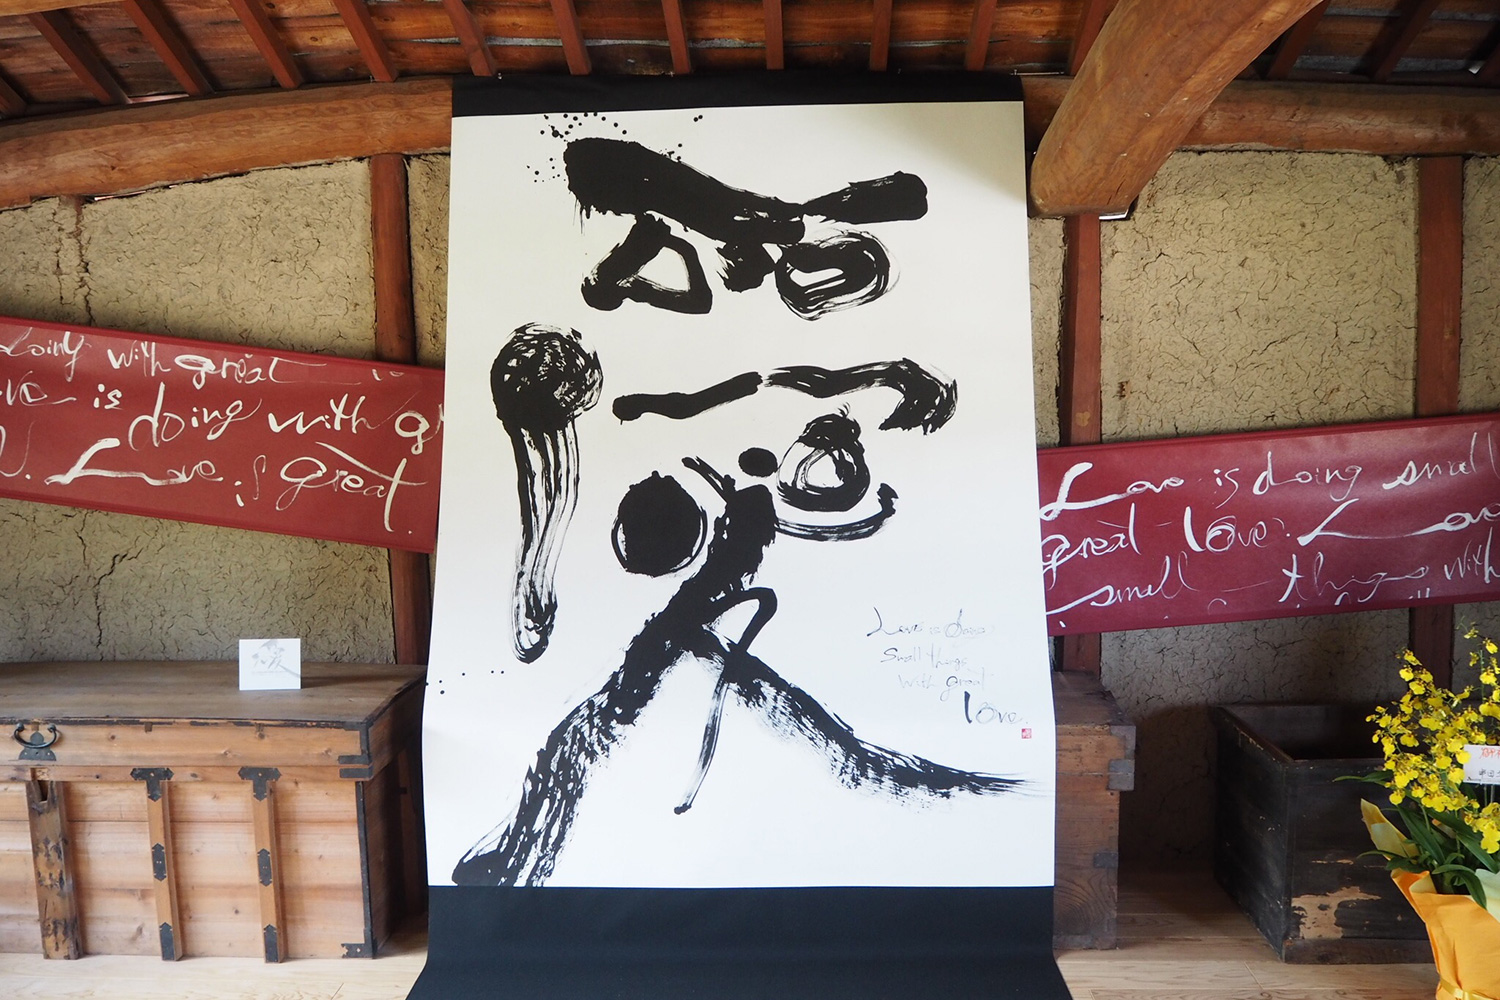 doing with great
is doing with
Love is great.
愛
Love is doing
small things
with great
love.
Love is doing small
great love. Love
small things with